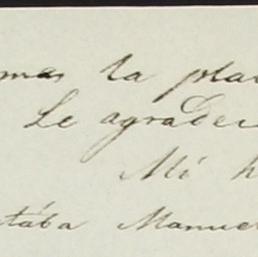 mas la pla
Le agradec
Mi h
taba Manue